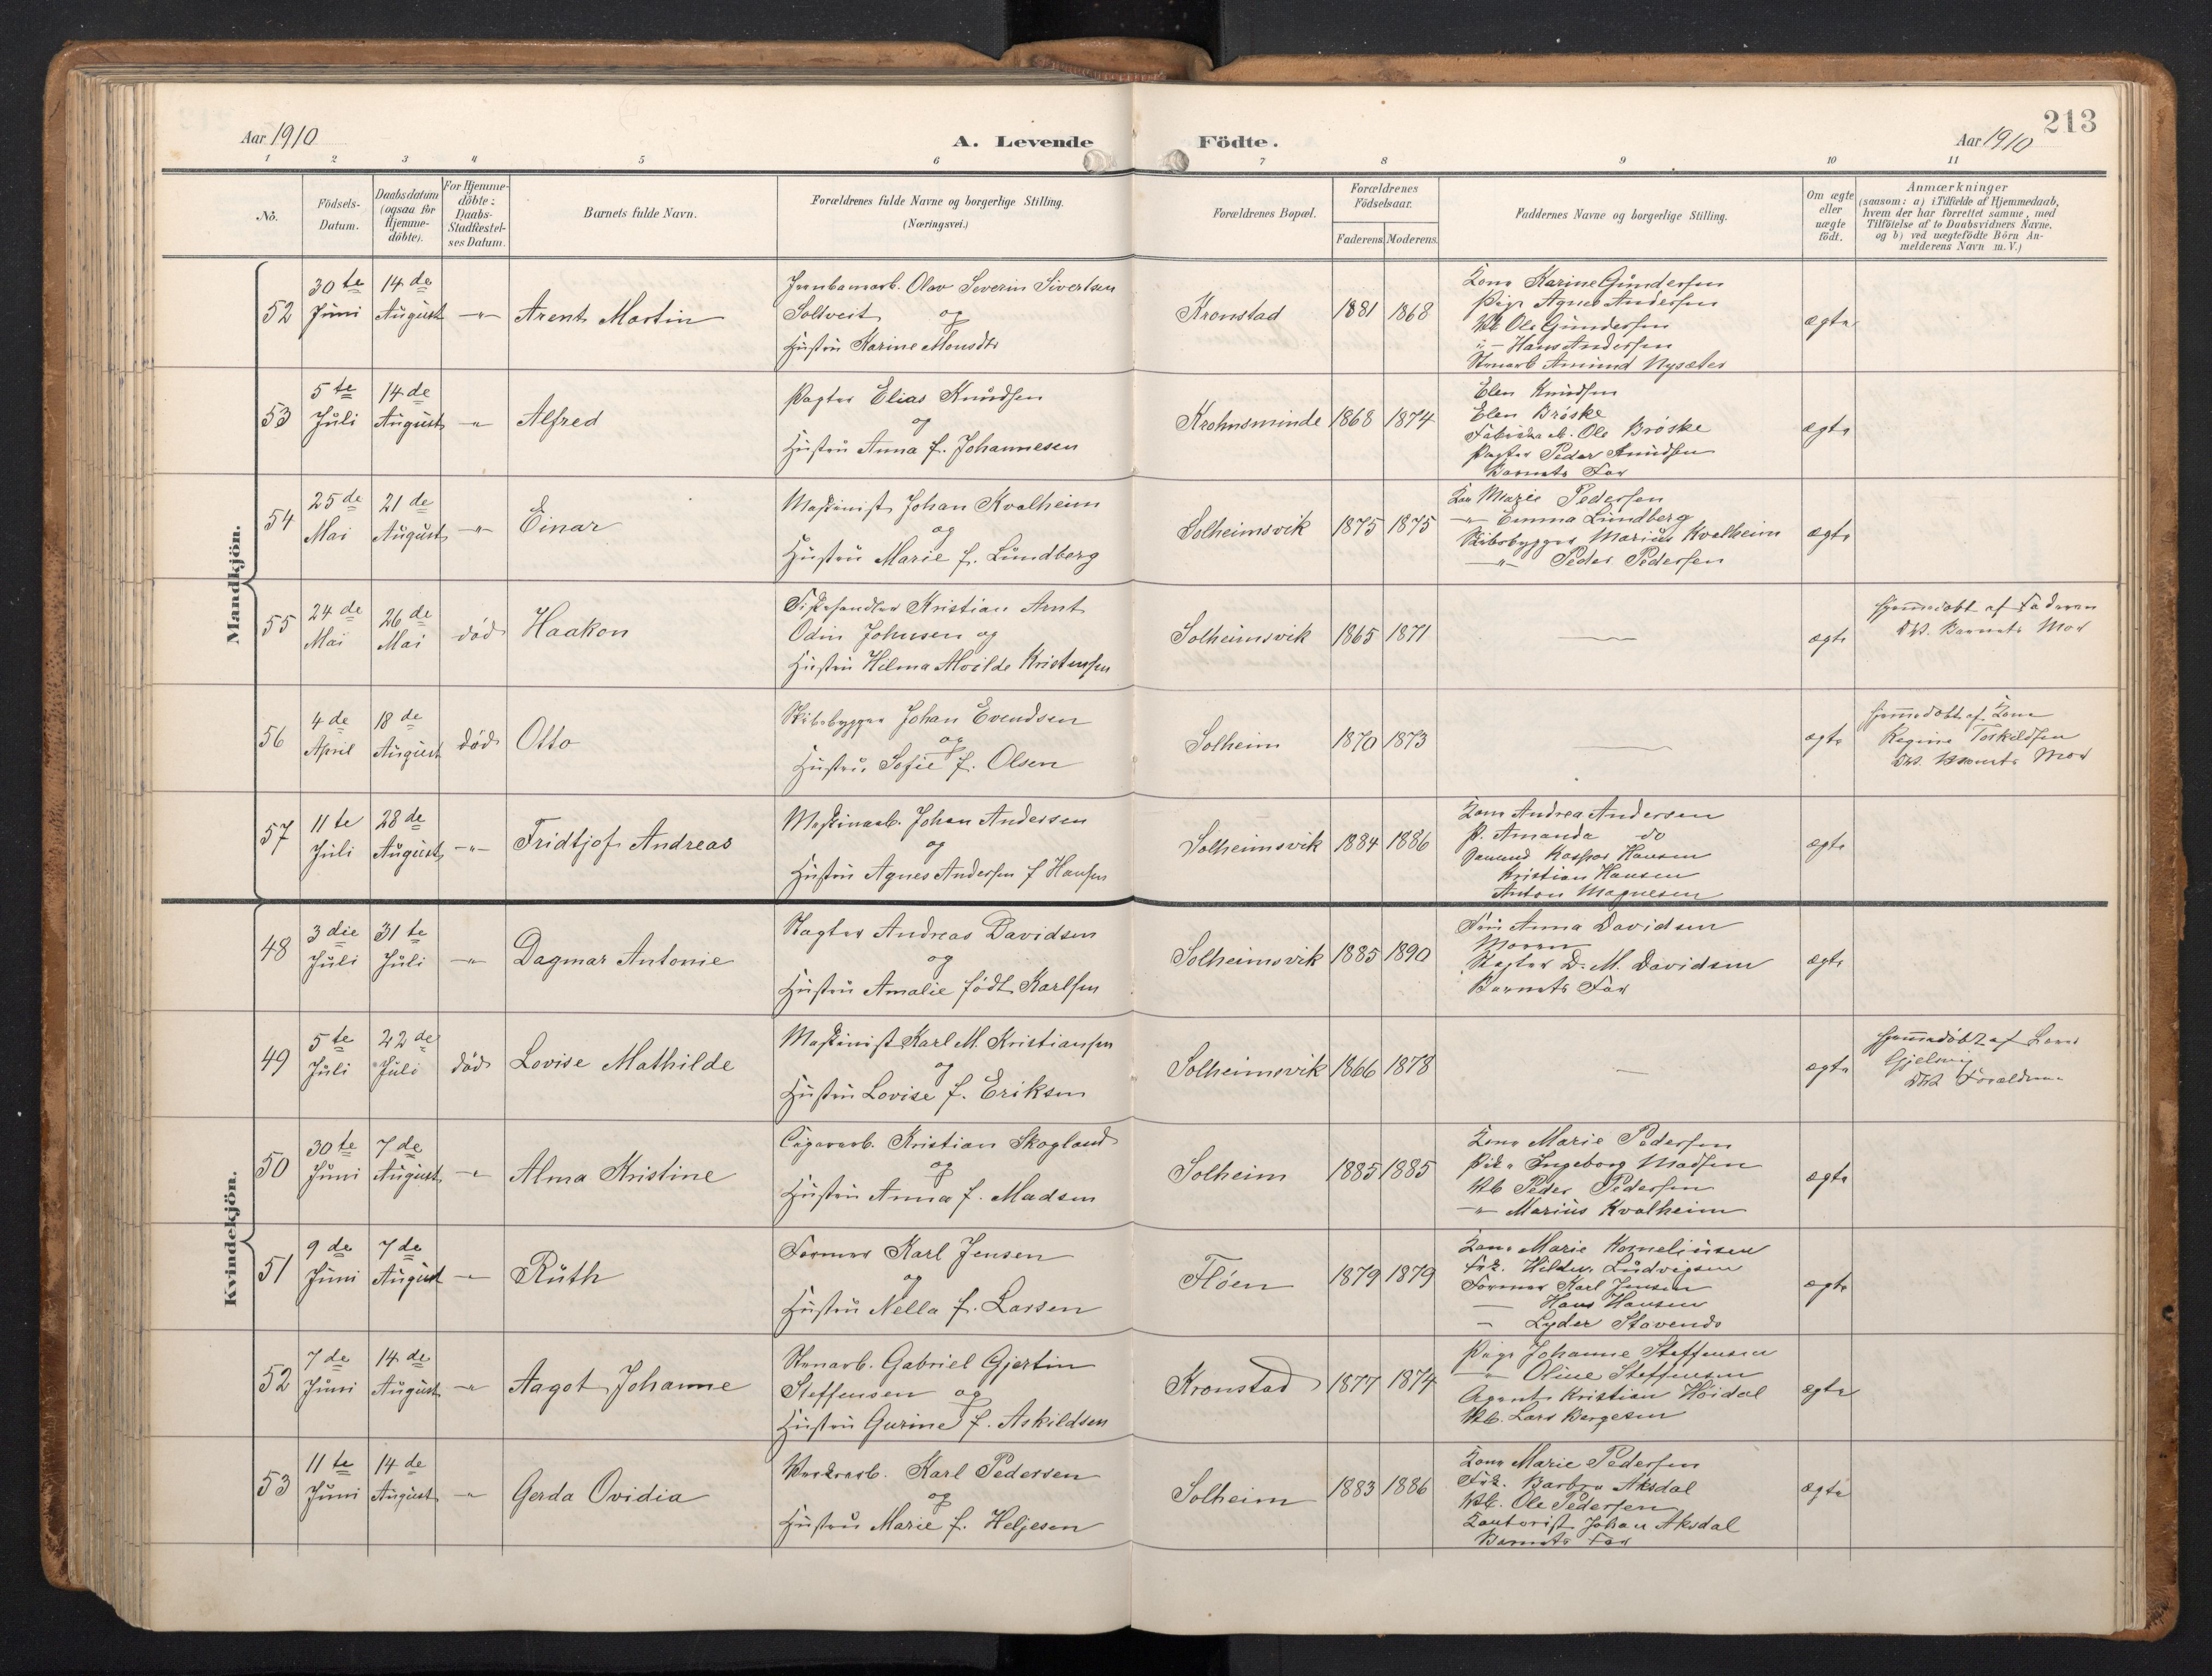 213
Aar 1910
A. Levende Födte.
Aar 1910
1 2 3 4 5 6 7 8 9 10 11
No.
Födsels-
Datum.
Daabsdatum
(ogsaa för
Hjemme-
döbte).
For Hjemme-
döbte:
Daabs-
Stadfæstel-
ses Datum.
Barnets fulde Navn.
Forældrenes fulde Navne og borgerlige Stilling.
(Næringsvei.)
Forældrenes Bopæl.
Forældrenes
Födselsaar.
Faderens. Moderens.
Faddernes Navne og borgerlige Stilling.
Om ægte
eller
uægte
födt.
Anmærkninger
(saasom: a) i Tilfælde af Hjemmedaab,
hvem der har forrettet samme, med
Tilföielse af to Daabsvidners Navne.
og b) ved uægtefödte Börn An-
melderens Navn m. V.)
Mandkjön.
52
30te
Juni
14de
August
-"-
Arent Martin
Jernbanearb. Olav Severin Sivertsen
Soltveit og
Hustru Karine Monsdtr
Kronstad
1881
1868
Kone Karine Gundersen
Pige Agnes Andersen
Ole Gundersen
"- Hans Andersen
Stenarb Amund Nysæter
ægte
53
5te
Juli
14de
August
-"-
Alfred
Pagter Elias Knudsen
og
Hustru Anna f. Johannesen
Krohnsminde
1868
1874
Elen Knudsen
Elen Bröske
Ole Bröske
Pagter Peder Knudsen
Barnets Far
ægte
54
25de
Mai
21de
August
-"-
Einar
Maskinist Johan Kvalheim
og
Hustru Marie f. Lundberg
Solheimsvik
1875
1875
Kone Marie Pedersen
-"- Emma Lundberg
Skibsbygger Marius Kvalheim
-"- Peder Pedersen
ægte
55
24de
Mai
26de
Mai
död
Haakon
Fiskehandler Kristian Arnt
Odin Johnsen og
Hustru Hilma Alvilde Kristensen
Solheimsvik
1865
1871
ægte
Hjemmedöbt af Faderen
Barnets Mor
56
4de
April
18de
August
död
Otto
Skibsbygger Johan Evendsen
og
Hustru Sofie f. Olsen
Solheim
1870
1873
ægte
Hjemmedöbt af Kone
Regine Torkildsen
Barnets Mor
57
11te
Juli
28de
August
-"-
Fridtjof Andreas
Maskinarb. Johan Andersen
og
Hustru Agnes Andersen f Hansen
Solheimsvik
1884
1886
Kone Andrea Andersen
P. Amanda do
Kaspar Hansen
Kristian Hansen
Anton Magnesen
ægte
Kvindekjön.
48
3die
Juli
31te
Juli
-"-
Dagmar Antonie
Slagter Andreas Davidsen
og
Hustru Amalie födt Karlsen
Solheimsvik
1885
1890
Fru Anna Davidsen
Moren
Slagter D. M. Davidsen
Barnets Far
ægte
49
5te
Juli
22de
Juli
död
Lovise Mathilde
Maskinist Karl M. Kristiansen
og
Hustru Lovise f. Eriksen
Solheimsvik
1866
1878
ægte
Hjemmedöbt af
Forældrene
50
30te
Juni
7de
August
-"-
Alma Kristine
Cigararb. Kristian Skogland
og
Hustru Anna f. Madsen
Solheim
1885
1885
Kone Marie Pedersen
Ingeborg Madsen
Peder Pedersen
-"- Marius Kvalheim
ægte
51
9de
Juni
7de
August
-"-
Ruth
Former Karl Jensen
og
Hustru Nella f. Larsen
Flöen
1879
1879
Kone Marie Korneliusen
Frk. Hilda Ludvigsen
Former Karl Jensen
— Hans Hansen
— Lyder Stavends
ægte
52
7de
Juni
14de
August
-"-
Aagot Johanne
Stenarb. Gabriel Gjertin
Steffensen og
Hustru Gurine f. Askildsen
Kronstad
1877
1874
Pige Johanne Steffensen
-"- Oline Steffensen
Agent Kristian Höidal
Lars Bergesen
ægte
53
11te
Juni
14de
August
-"-
Gerda Ovidia
Karl Pedersen
og
Hustru Marie f. Heljesen
Solheim
1883
1886
Kone Marie Pedersen
Frk. Barbra Aksdal
Ole Pedersen
Kontorist Johan Aksdal
Barnets Far
ægte